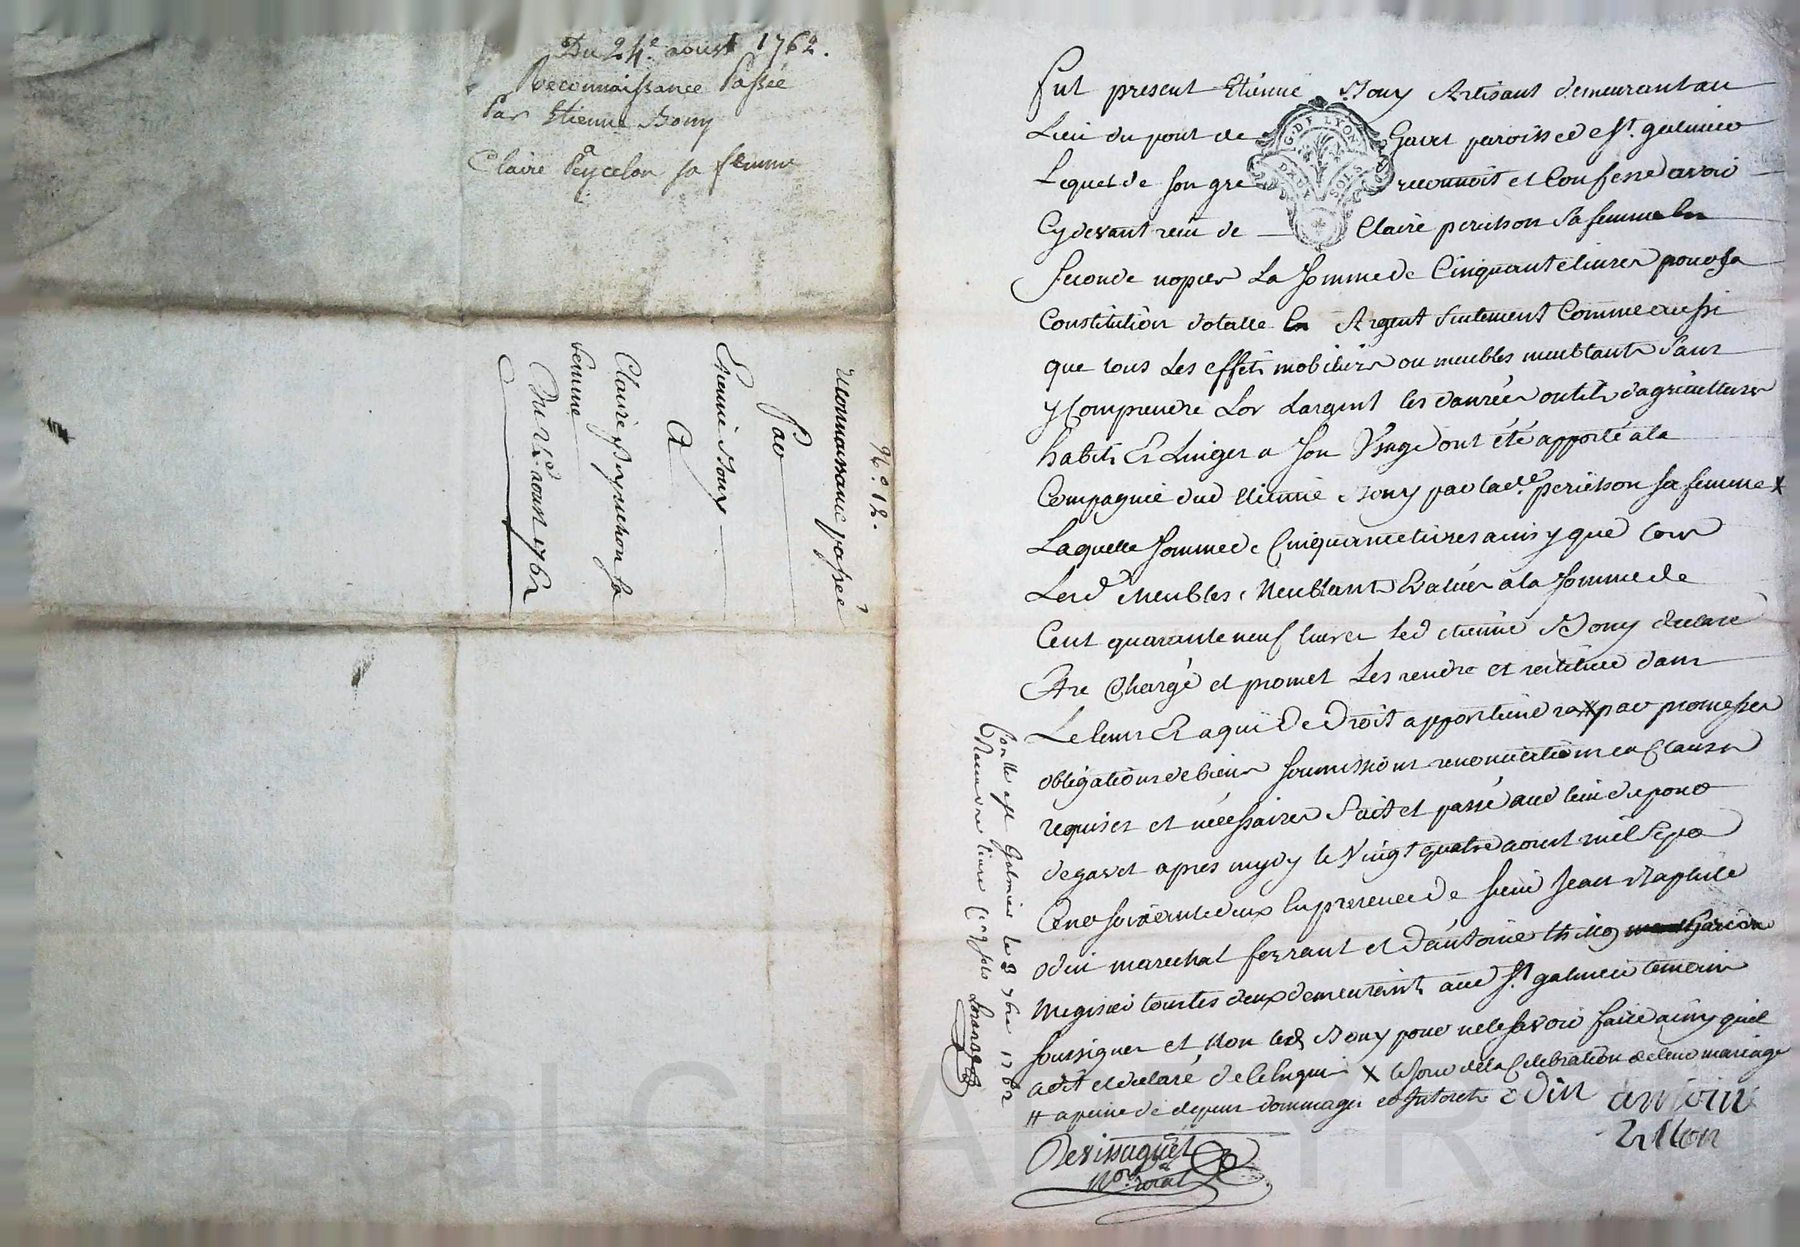 Du 24e aoust 1762.
Reconnaissance Passée
Par Etienne Bony
a
Claire Peycelon sa femme
N.o 12.
reconnaissance passée
Par
Etienne Bony
A
Claire perichon sa
femme
Du 24 aoust 1762
Fut present Etienne Bony Artisant demeurant au
Lieu du pont de Gavet paroisse de St. galmier
Lequel de son gre reconnoit et Confesse avoir
Cydevant reçu de Claire perichon Sa femme en
Seconde nopces La Somme de Cinquante livres pour sa
Constitution dotalle en Argent Seulement Comme aussi
que tous Les effets mobiliers ou meubles meublants Sans
y Comprendre Lor Largent les danrées outils dagriculture
habits Et Linges a Son Usage ont été apporté a la
Compagnie dud Etienne Bony par lad.e perichon sa femme x
Laquelle Somme de Cinquante livres ainsy que tous
Lesd Meubles Meublants Evalués a la Somme de
Cent quarante neuf livres led etienne Bony declare
Etre Chargé et promet Les rendre et restituer dans
Le tems Et a qui De Droit appartiendra # par promesses
obligations de biens soumissions renonciations et Clauses
requises et nécessaires Fait et passé aud lieu du pont
de gavet apres mydy le Vingt quatre aoust mil Sept
Cent soixante deux En presence de sieur Jean Baptiste
odin marechal ferrant et D'antoine garcon
Megissier tous les deux demeurants aud St galmier temoins
soussignes et Non led Bony pour ne le savoir faire ainsy quil
a dit et declaré de ce Enquis x le jour de la Celebration de leur mariage
# a peine de depens dommages et Interets odin antoine
Devissaguet
No.re Royal
Con.lle a St Galmier le 3 7bre 1762